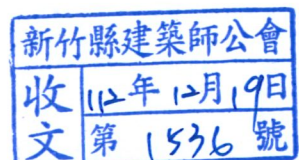 新竹縣建築師公會
收文
112年12月19日
第 1536 號